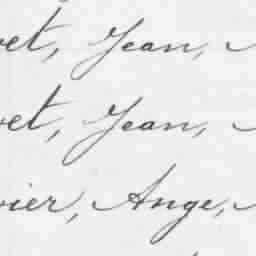 vet, Jean,
vet, Jean,
vier, Ange,